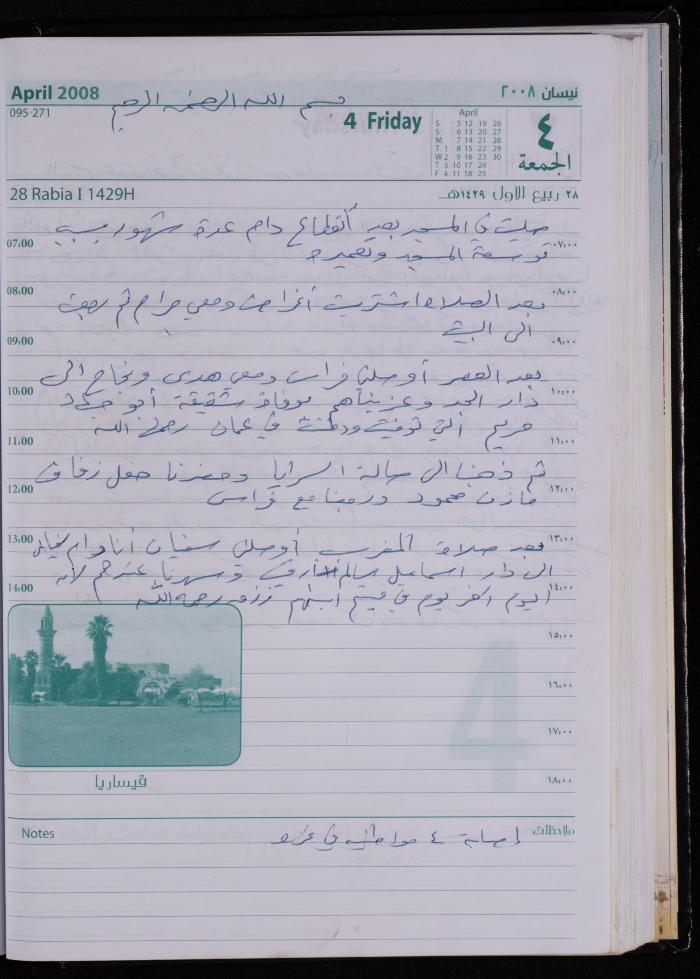 April 2008
نيسان ٢٠٠٨
095-271
بسم الله الرحمن الرحيم
4 Friday
April
S 5 12 19 26
S 6 13 20 27
M 7 14 21 28
T 1 8 15 22 29
W 2 9 16 23 30
T 3 10 17 24
F 4 11 18 25
٤
الجمعة
28 Rabia I 1429H
٢٨ ربيع الاول ١٤٢٩هـ
صليت في المسجد بعد أنقطاع دام عدة شهور بسبب
07:00
٠٧:٠٠
توسعة المسجد وتعميره
08:00
٠٨:٠٠
بعد الصلاة اشتريت أغراض ومعي مرام ثم رجعت
الى البيت
09:00
٠٩:٠٠
بعد العصر أوصلني فراس ومعي هدى ونجاح الى
10:00
١٠:٠٠
دار الجد وعزيناهم بوفاة شقيقة أبو
مريم التي توفيت ودفنت في عمان رحمها الله
11:00
١١:٠٠
ثم ذهبنا الى صالة السرايا وحضرنا حفل زفاف
12:00
١٢:٠٠
مازن محمود ورجعنا مع فراس
13:00
١٣:٠٠
بعد صلاة المغرب أوصلني سفيان أنا وام سفيان
الى دار اسماعيل سالم وسهرنا عندهم لأنه
14:00
١٤:٠٠
اليوم اخر يوم في ابنهم رحمه الله
١٥:٠٠
4
١٦:٠٠
١٧:٠٠
قيساريا
١٨:٠٠
Notes
ملاحظات
إصابة ٤ مواطنين في غزة